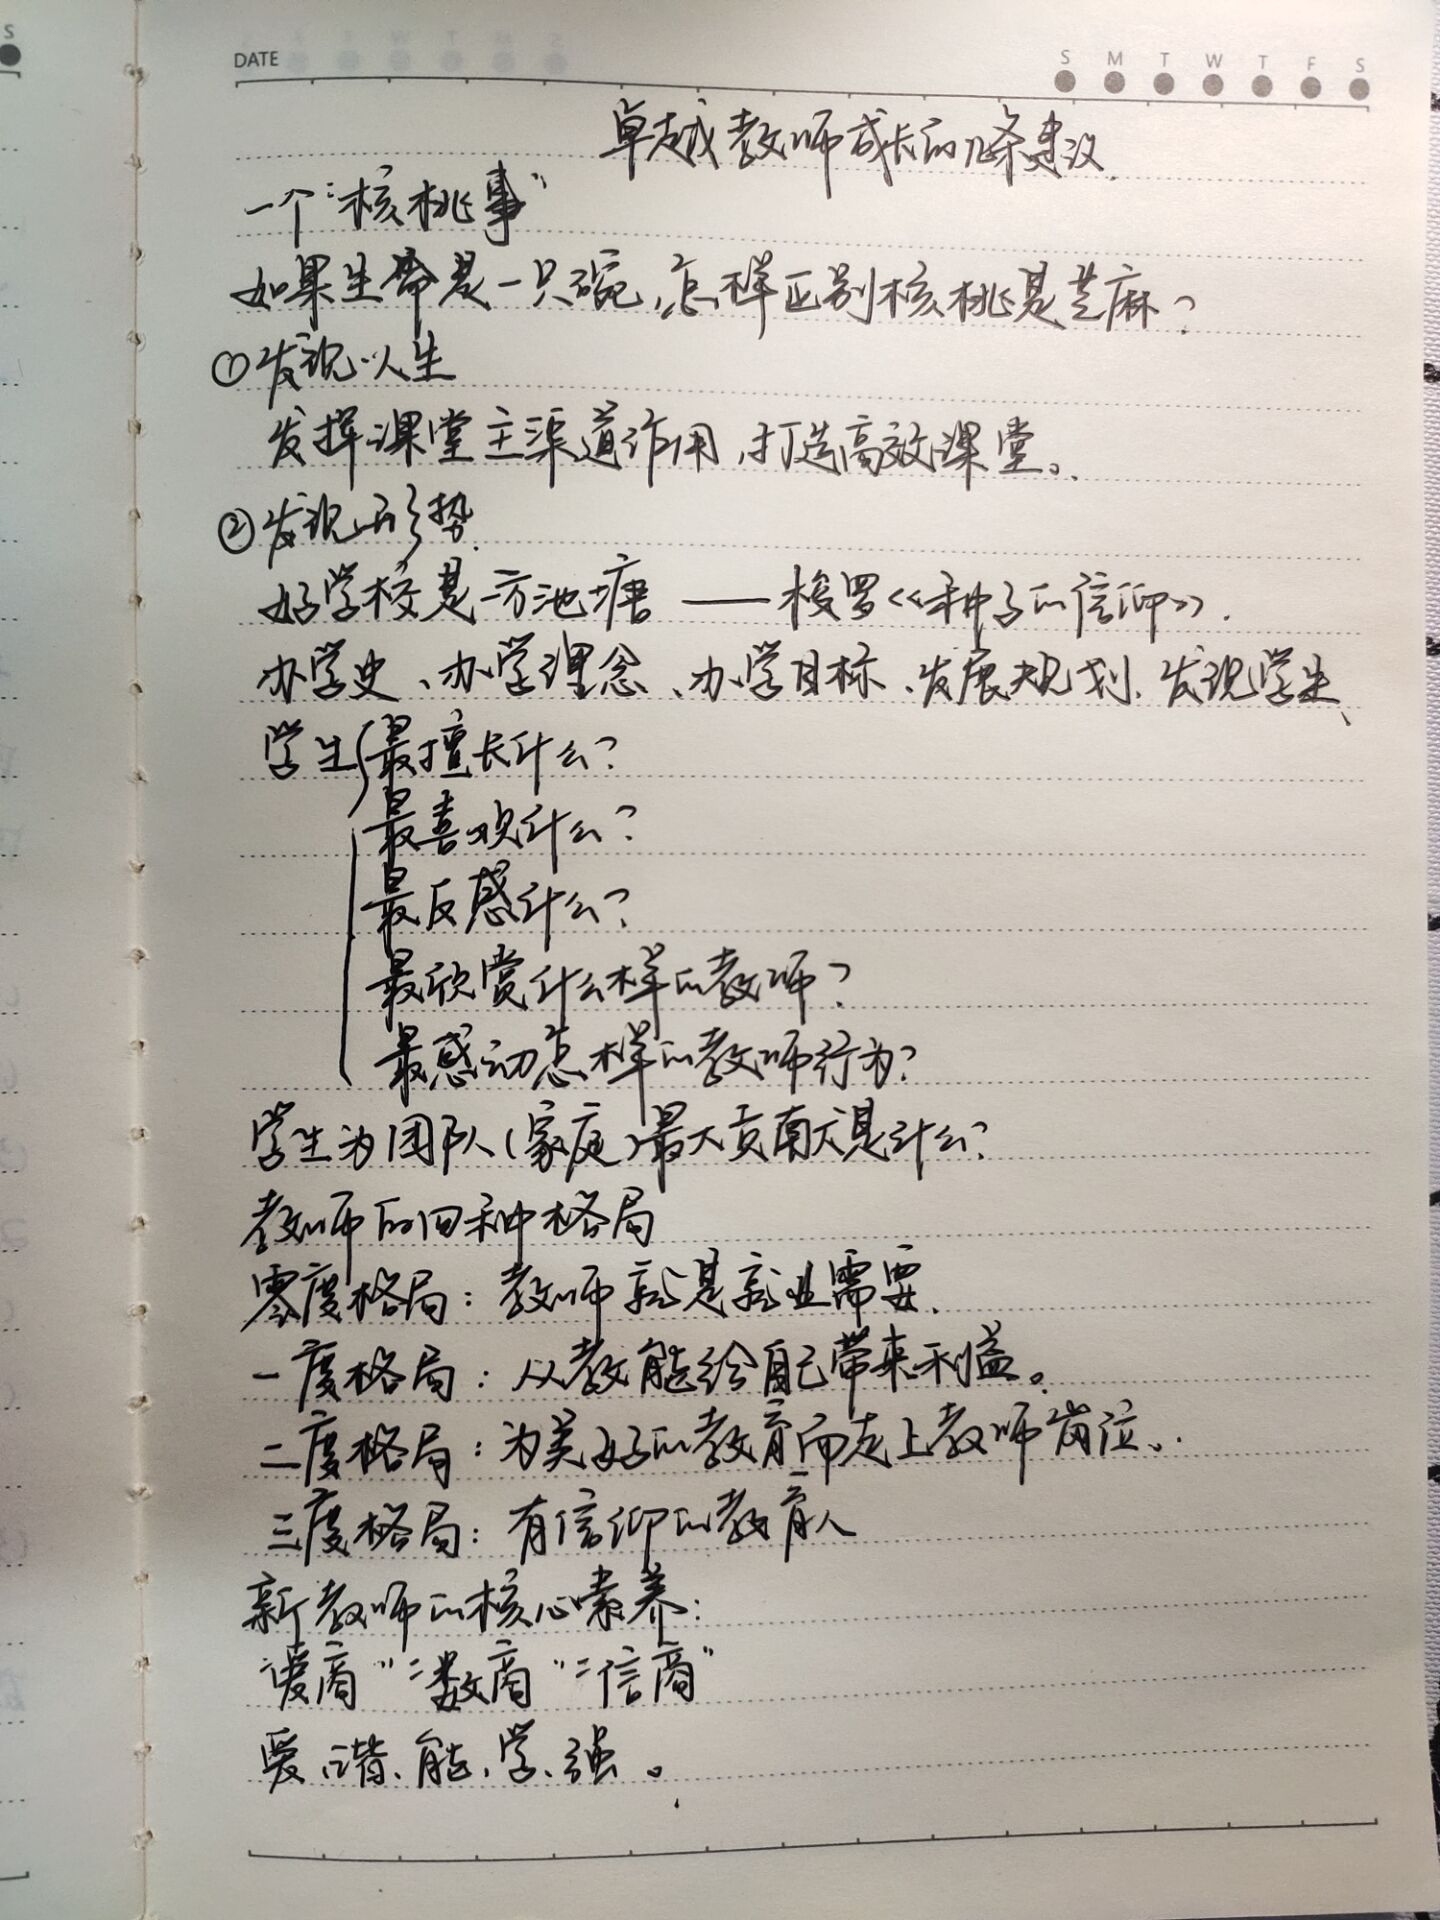 DATE
S M T W T F S
卓越教师成长的几条建议
一个“核桃事”
如果生命是一只碗，怎样区别核桃是芝麻？
①发现·人生
发挥课堂主渠道作用，打造高效课堂。
②发现·形势
好学校是一方池塘——梭罗《种子的信仰》.
办学史、办学理念、办学目标、发展规划、发现学生、
学生{最擅长什么？
最喜欢什么？
最反感什么？
最欣赏什么样的教师？
最感动怎样的教师行为？
学生为团队（家庭）最大贡献是什么？
教师的四种格局
零度格局：教师就是就业需要.
一度格局：从教能给自己带来利益。
二度格局：为美好的教育而走上教师岗位.
三度格局：有信仰的教育人
新教师的核心素养：
爱商”“数商”“信商”
爱、谐、能、学、强。